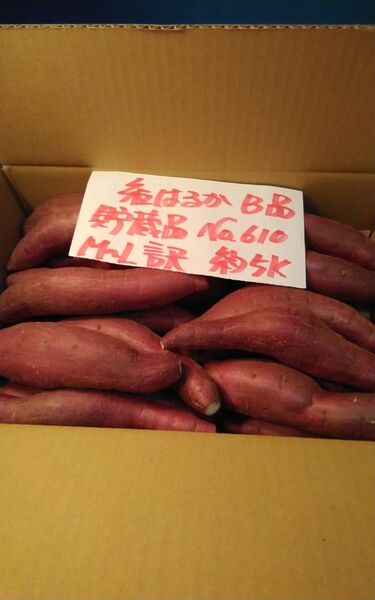 紅はるか B品
貯蔵品 No610
M〜L 訳 約5K